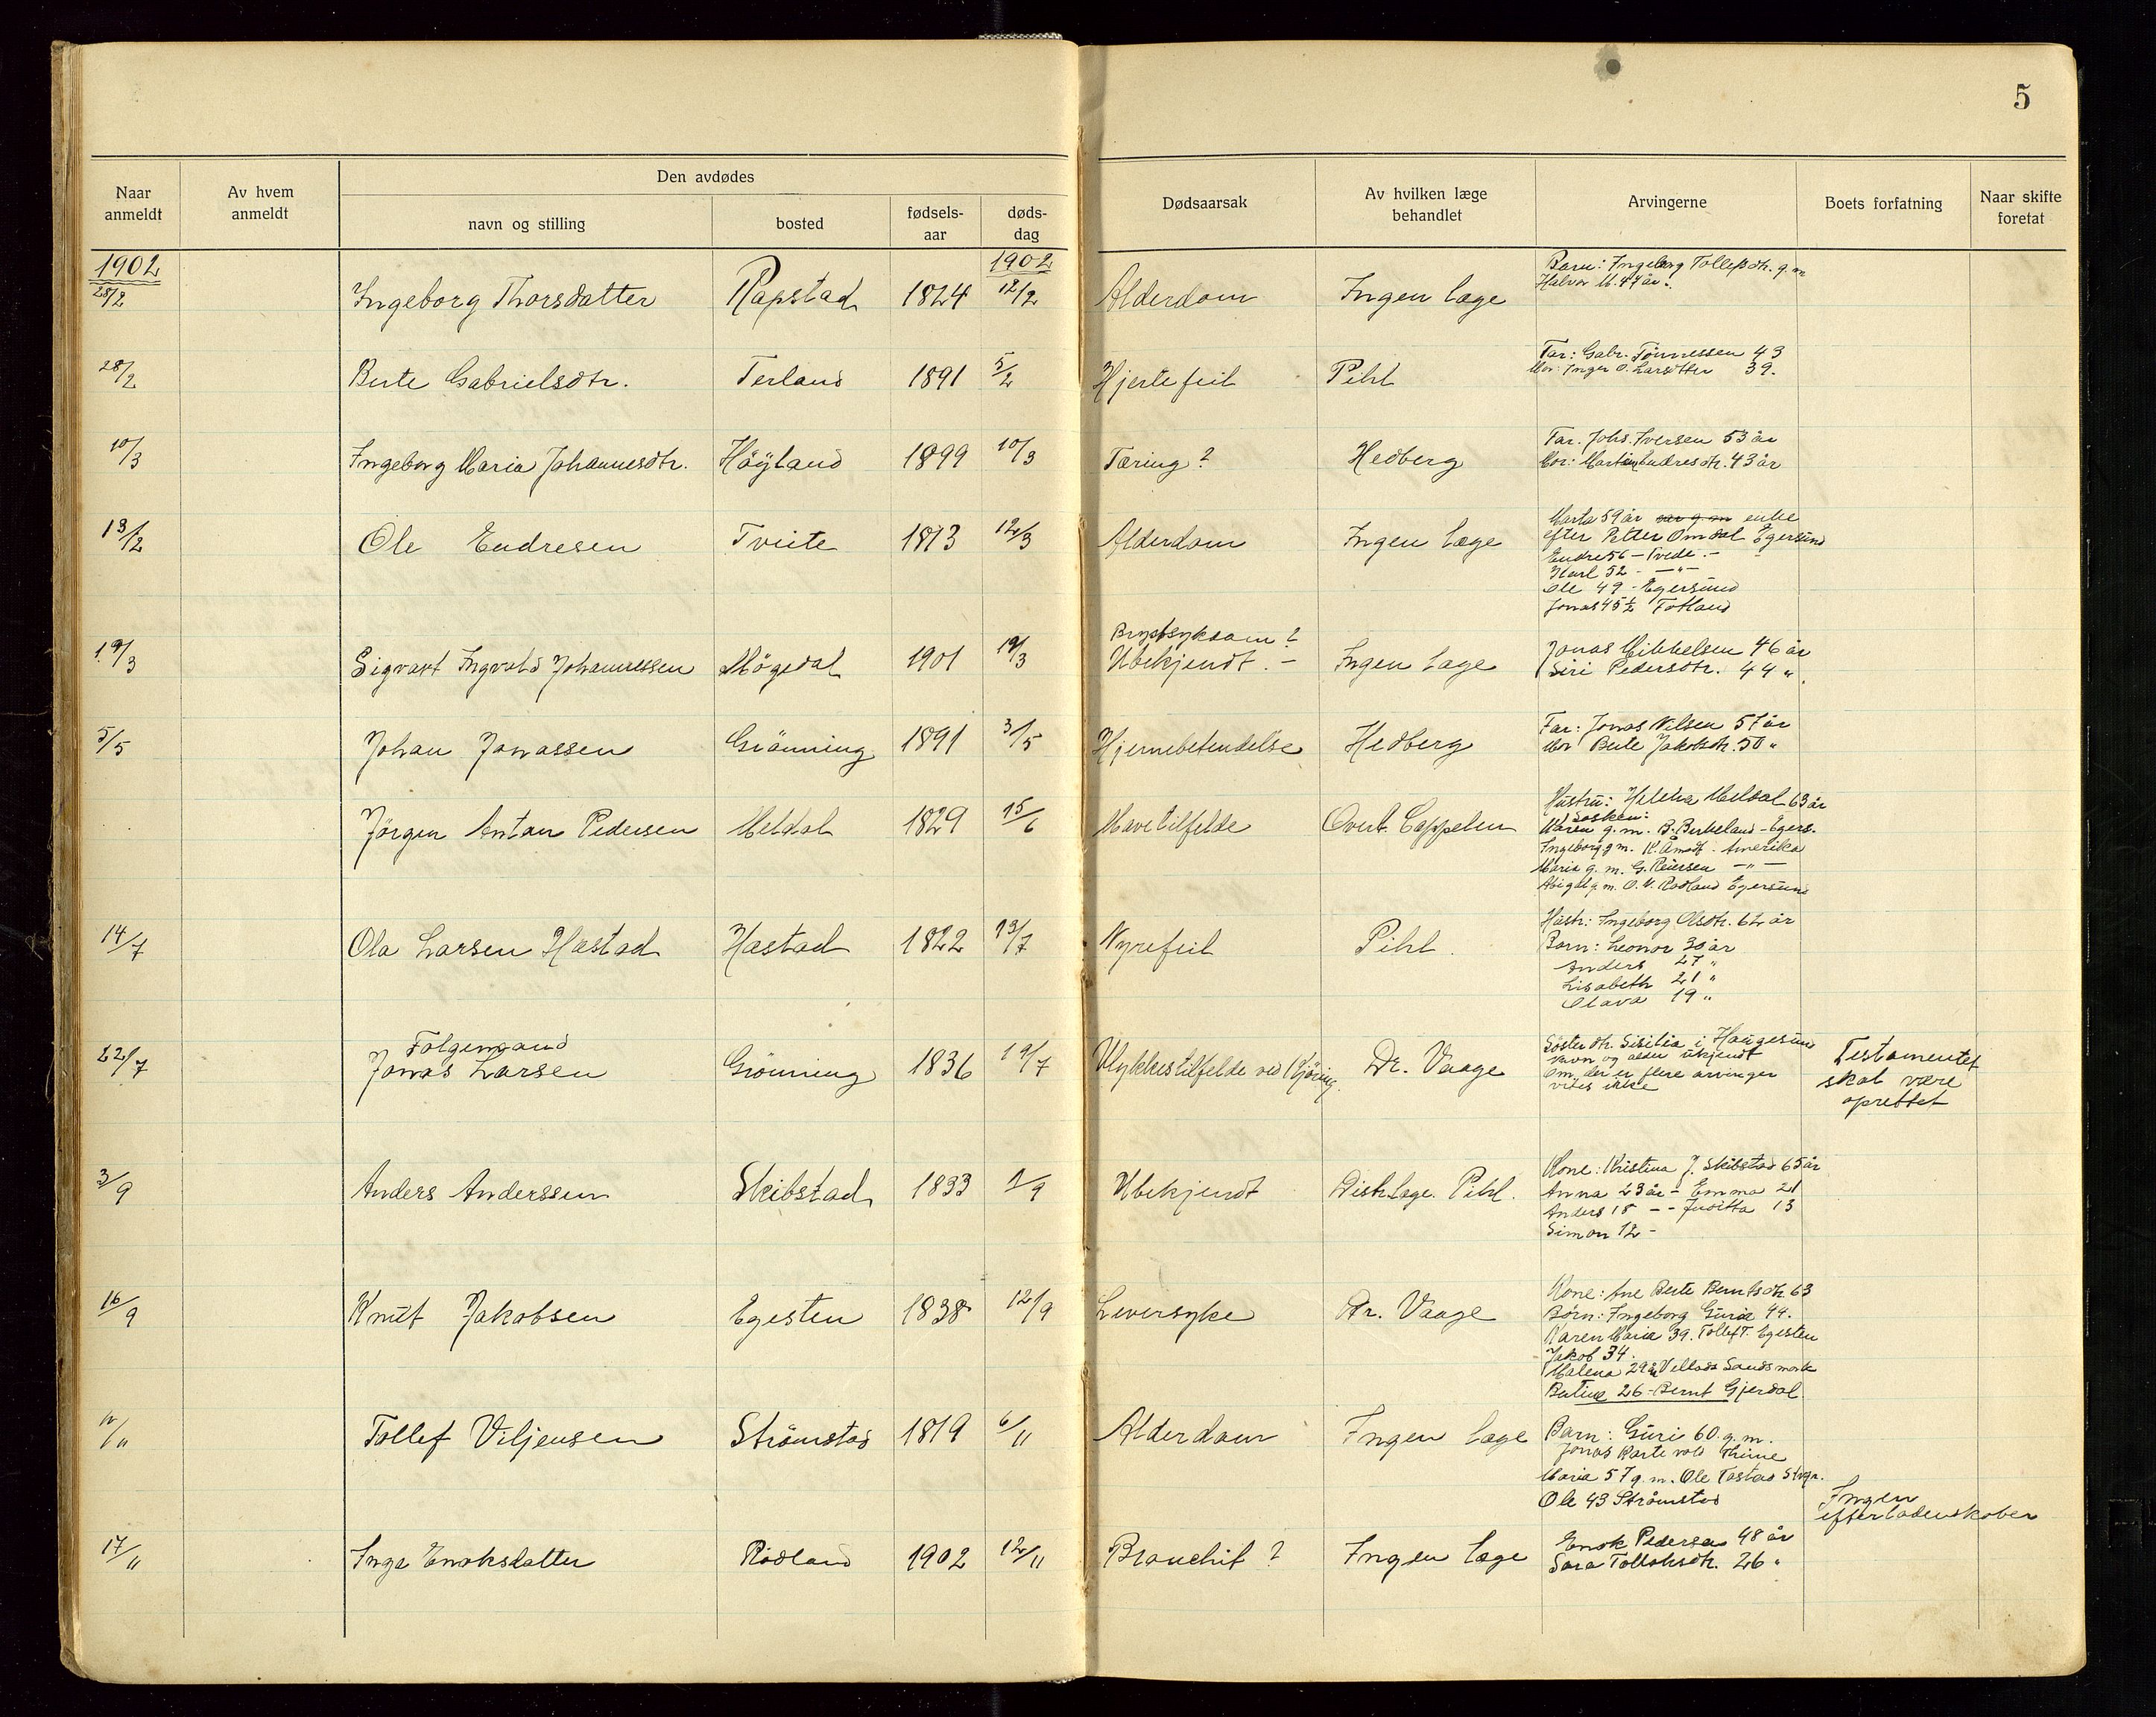 5
Naar anmeldt
Av hvem anmeldt
Den avdødes
navn og stilling
bosted
fødsels-aar
døds-dag
Dødsaarsak
Av hvilken læge behandlet
Arvingerne
Boets forfatning
Naar skifte foretat
1902
1902
28/2 Ingeborg Thorsdatter Rapstad 1824 12/2 Alderdom Ingen læge
Barn: Ingeborg Tollefsdtr. g.m
Halvor M. 47 år.
28/2 Berte Gabrielsdtr. Terland 1891 5/2 Hjertefeil Pihl
Far: Gabr. Tönnessen 43
Mor: Inger O. Larsdtter 39.
10/3 Ingeborg Maria Johannesdtr. Höyland 1899 10/3 Tæring? Hedberg
Far. Johs. Iversen 53 år
Mor: Martin Endresdtr. 43 år
13/2 Ole Endresen Tveite 1813 12/3 Alderdom Ingen læge
Marta 59 år enke
efter Petter Omdal Egersund
Endre 56 - Tvede -
Karl 52 - -"-
Ole 49 - Egersund
Jonas 45 ½ Totland
19/3 Sigvart Ingvald Johannessen Mögedal 1901 19/3
Brystsykdom?
Ubekjendt. - Ingen læge
Jonas Mikkelsen 46 år
Siri Pedersdtr. 44 "
5/5 Johan Jonassen Grönning 1891 3/5 Hjernebetendelse Hedberg
Far: Jonas Nilsen 57 år
Mor Berte Jakobsdtr. 50 "
Jörgen Antan Pedersen Meldal 1829 15/6 Mavetilfelde Overl. Cappelen
Hustru: Helena Meldal 63 år
Sosken:
Karen g.m. B. Birkeland - Egers.
Ingeborg g.m. K. Åmodt - Amerika
Maria g.m. G. Reiersen -"-
Abigal g.m. O. V. Rodland Egersund
14/7 Ola Larsen Hæstad Hæstad 1822 13/7 Nyrefeil Pihl.
Hustr: Ingeborg Olsdtr. 62 år
Barn: Leonor 30 år
Anders 27 "
Lisabeth 21 "
Olava 19 "
Folgemand
22/7 Jonas Larsen Grönning 1836 19/7 Ulykkestilfelde ved Kjöring. Dr. Vaage
Söster dtr. Sisilia i Haugesund
navn og alder ukjendt
Om der er flere arvinger
vites ikke
Testamentet
skal være
oprettet
3/9 Anders Anderssen Skibstad 1833 1/9 Ubekjendt Distr.læge. Pihl.
Kone: Kristina J. Skibstad 65 år
Anna 23 år - Emma 21
Anders 15 - - Juditta 13
Simon 12 -
16/9 Knut Jakobsen Egesten 1838 12/9 Leversyke Dr. Vaage
Kone: Ane Berte Berntsdtr 63
Börn: Ingeborg Guria 44.
Karen Maria 39. Tollef T. Egesten
Jakob 34.
Malena 29 år Sandsmark
Bertine 26 - Bernt Gjerdal
11/11 Tollef Viljensen Strömstad 1819 6/11 Alderdom Ingen læge
Barn: Guri 60. g.m.
Jonas Thime
Maria 57 g.m. Ole Tastad
Ole 43 Strömstad
Ingen
efterladenskaber
17/11 Inga Enoksdatter Rödland 1902 12/11 Bronchit? Ingen læge
Enok Pedersen 48 år
Sara Tolleksdtr. 26 "